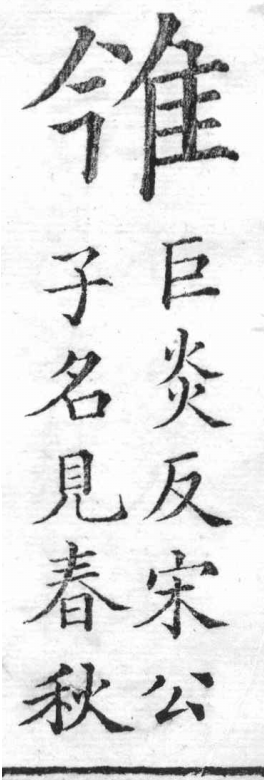 雂
巨炎反宋公
子名見春秋